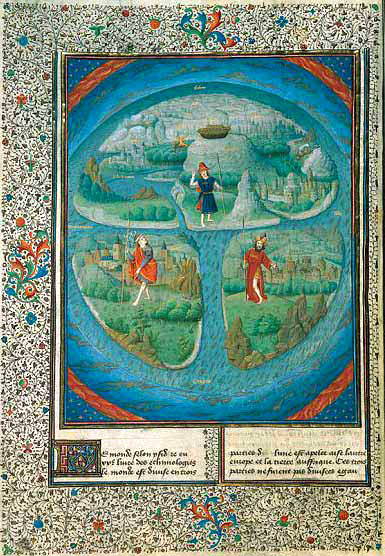 Le monde selon ysid re eu
livre des ethimologies
le monde est divise en trois
parties d lune est apelee asie lautre
europe et la tierce auffrique. Ces trois
parties ne furent pas divisees egau